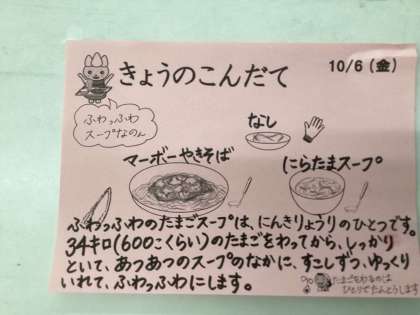 きょうのこんだて
10/6（金）
ふわっふわ
スープなのん
なし
マーボーやきそば
にらたまスープ
ふわっふわのたまごスープは、にんきりょうりのひとつです。
34キロ(600こくらい)のたまごをわってから、しっかり
といて、あつあつのスープのなかに、すこしずつ、ゆっくり
いれて、ふわっふわにします。
たまごをわるのは
ひとりでたんとうします